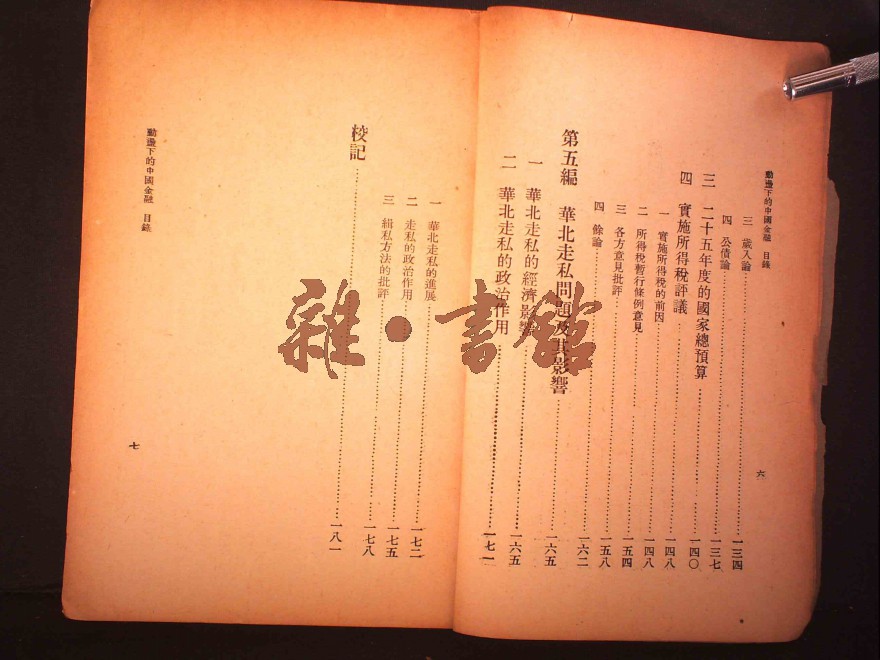 動盪下的中國金融 目錄
三 歲入論……一三四
四 公債論……一三七
三 二十五年度的國家總預算……一四〇
四 實施所得稅評議……一四八
一 實施所得稅的前因……一四八
二 所得稅暫行條例意見……一五四
三 各方意見批評……一五八
四 餘論……一六二
第五編 華北走私問題及其影響……一六五
一 華北走私的經濟影響……一六五
二 華北走私的政治作用……一七一
六
一 華北走私的進展……一七二
二 走私的政治作用……一七五
三 緝私方法的批評……一七八
校記……一八一
動盪下的中國金融 目錄
七
雜·書館